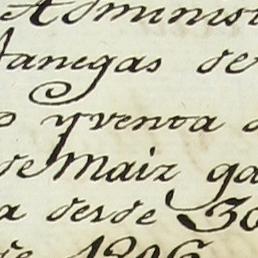 Administ
fanegas de
yventa d
de Maiz ga
a desde 30
de 1806